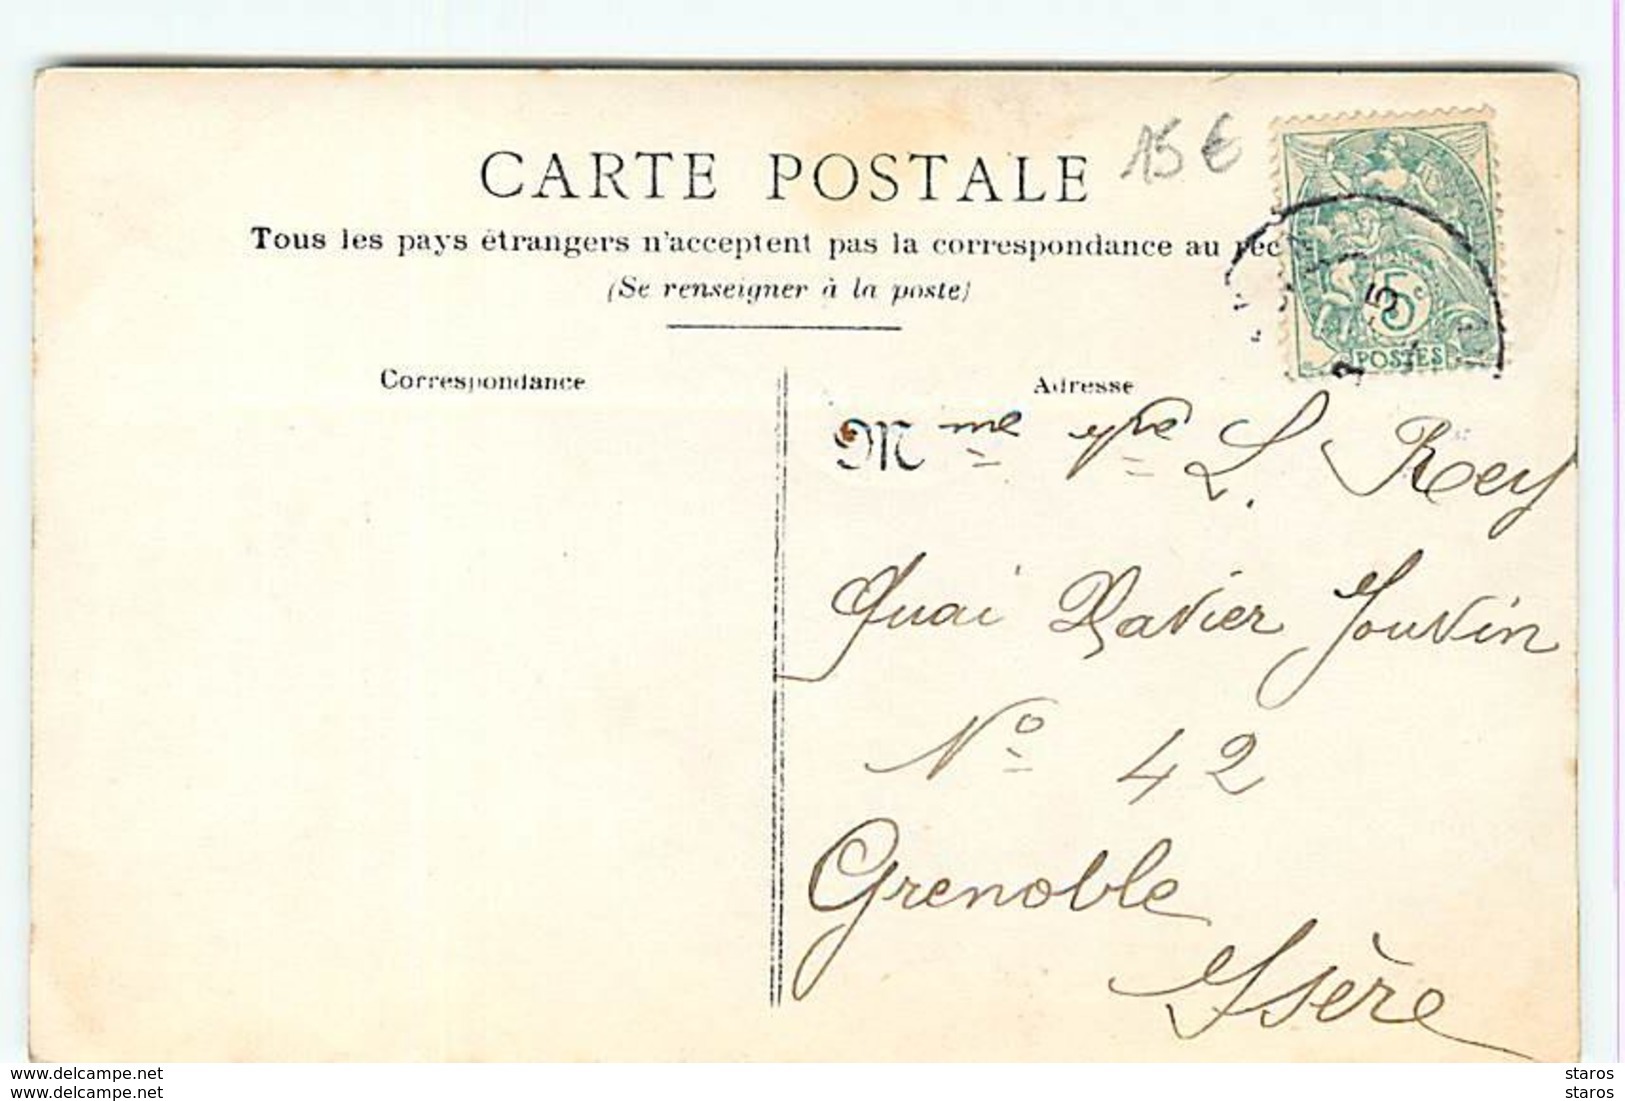 CARTE POSTALE
15 €
Tous les pays étrangers n'acceptent pas la correspondance au rec
(Se renseigner à la poste)
Correspondance
Adresse
5c
POSTES
Mme Vve L. Rey
Quai Xavier Jouvin
No 42
Grenoble
Isère
www.delcampe.net
www.delcampe.net
staros
staros